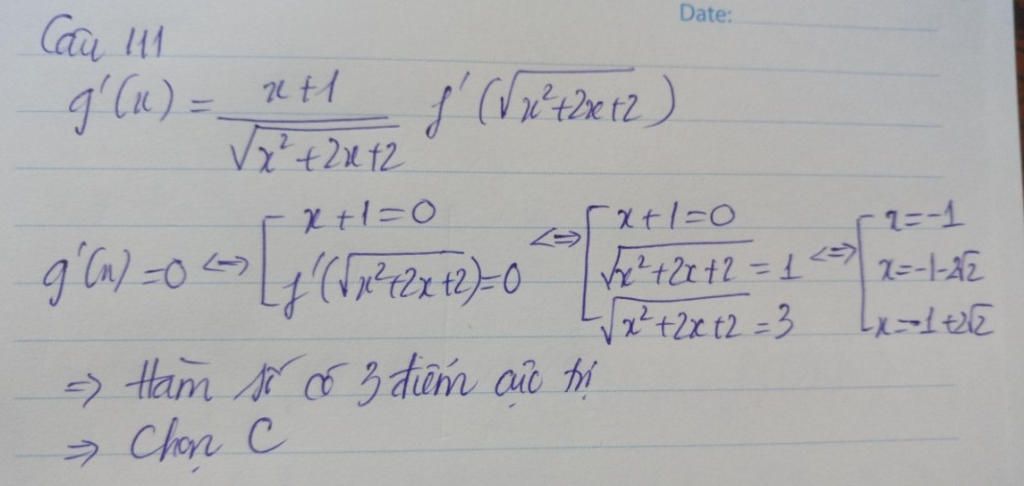 Date:
Câu 111
g'(x) = x+1 / √x²+2x+2 f'(√x²+2x+2)
g'(x) = 0 <=> [ x+1=0 ; f'(√x²+2x+2)=0 <=> [ x+1=0 ; √x²+2x+2 = 1 ; √x²+2x+2 = 3 <=> [ x=-1 ; x=-1-2√2 ; x=-1+2√2
=> Hàm số có 3 điểm cực trị
=> Chọn C